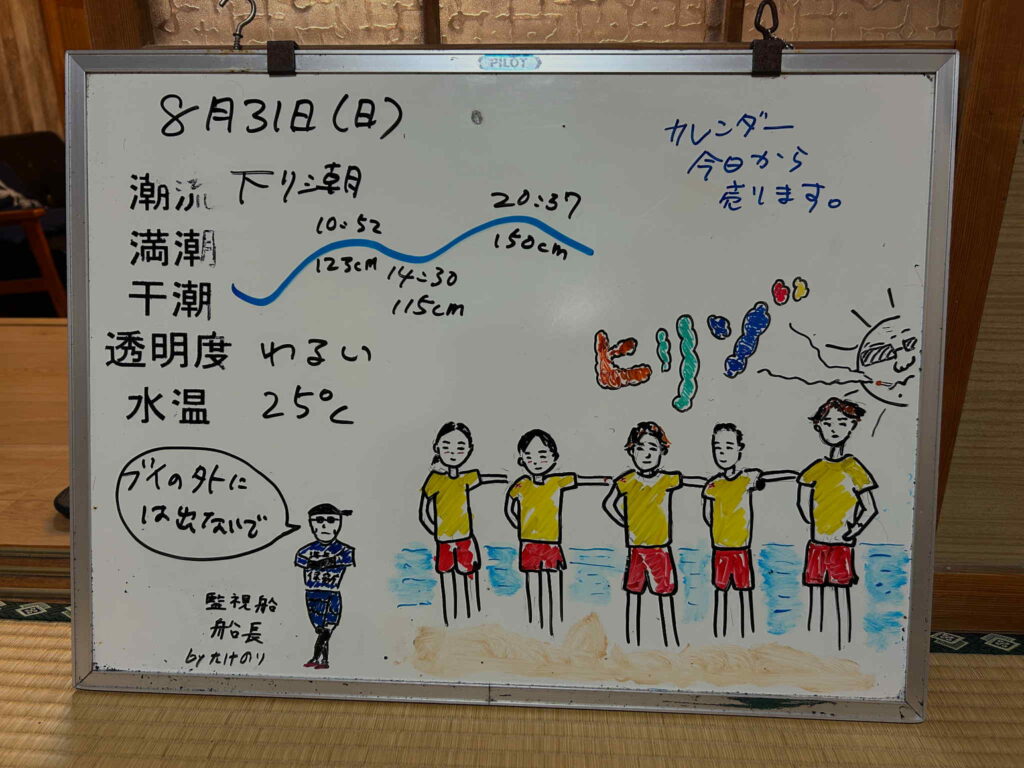 PILOT
8月31日(日)
カレンダー
今日から
売ります。
潮流 下り潮
満潮
干潮
10:52
123cm
14:30
115cm
20:37
150cm
透明度 わるい
水温 25℃
ヒリゾ
ブイの外に
は出ないで
監視船
船長
by たけのり